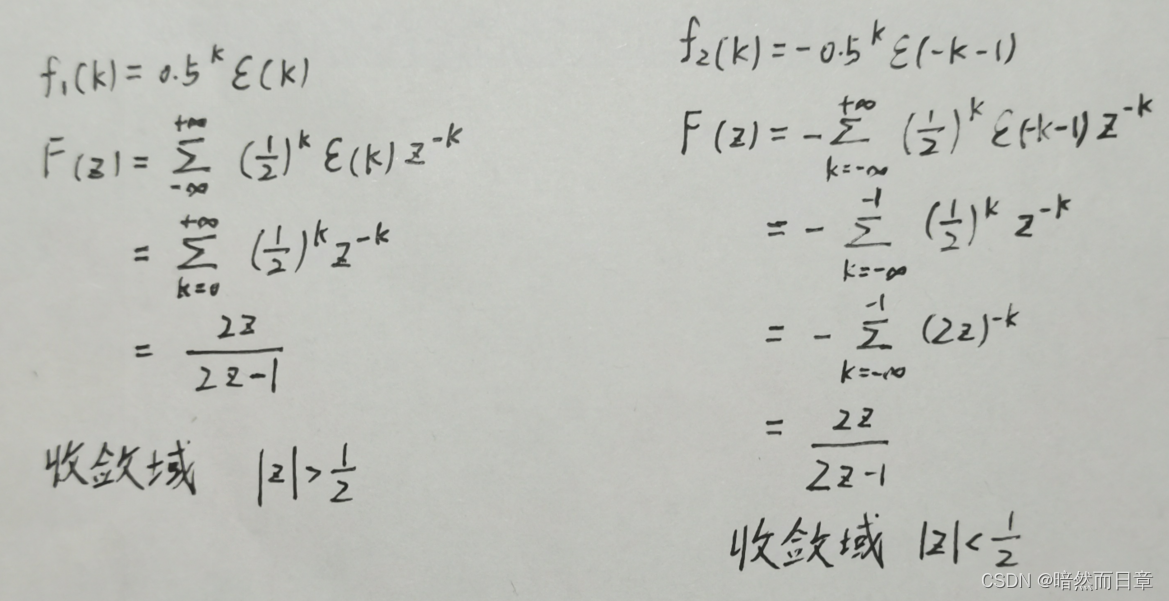 f₁(k) = 0.5^k ε(k)
F(z) = Σ_{-∞}^{+∞} (1/2)^k ε(k) z^{-k}
= Σ_{k=0}^{+∞} (1/2)^k z^{-k}
= 2z / (2z-1)
收敛域 |z| > 1/2
f₂(k) = -0.5^k ε(-k-1)
F(z) = -Σ_{k=-∞}^{+∞} (1/2)^k ε(-k-1) z^{-k}
= -Σ_{k=-∞}^{-1} (1/2)^k z^{-k}
= -Σ_{k=-∞}^{-1} (2z)^{-k}
= 2z / (2z-1)
收敛域 |z| < 1/2
CSDN @暗然而日章